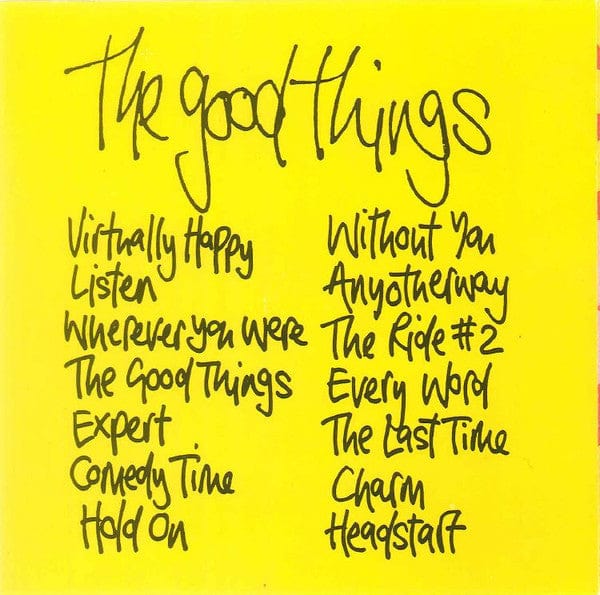 The good things
Virtually Happy
Listen
Wherever you were
The Good Things
Expert
Comedy Time
Hold On
Without You
Anyotherway
The Ride #2
Every Word
The Last Time
Charm
Headstart